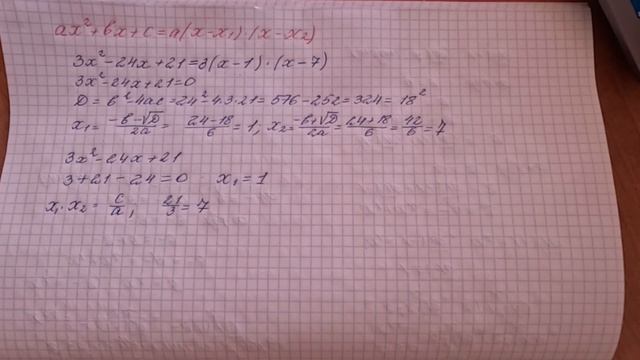 ax²+bx+c=a(x-x₁)·(x-x₂)
3x²-24x+21=3(x-1)·(x-7)
3x²-24x+21=0
D=b²-4ac=24²-4·3·21=576-252=324=18²
x₁=(-b-√D)/2a=(24-18)/6=1; x₂=(-b+√D)/2a=(24+18)/6=42/6=7
3x²-24x+21
3+21-24=0 x₁=1
x₁·x₂=c/a; 21/3=7